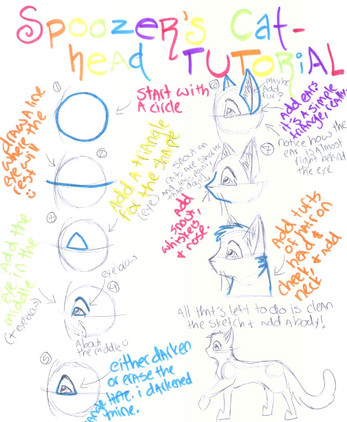 Spoozer's Cat-
head TUTORIAL
1
START with
A circle
2
DRAW A line
where the
eye will
rest
3
Add A triangle
for the shape
(eye)
Add the
eye in the
middle
(+ eyebrow)
4
eyebrow
About
the middle
5
either darken
or erase the
line. i darkened
mine.
6
maybe
Add
fur?
Add ears
it's a simple
triangle,
notice how the
ear is almost
right behind
the eye
7
Add
snout,
whiskers,
& nose
Add tufts
of fur on
head &
cheek, & add
neck
All that's left to do is clean
the sketch & Add A body!